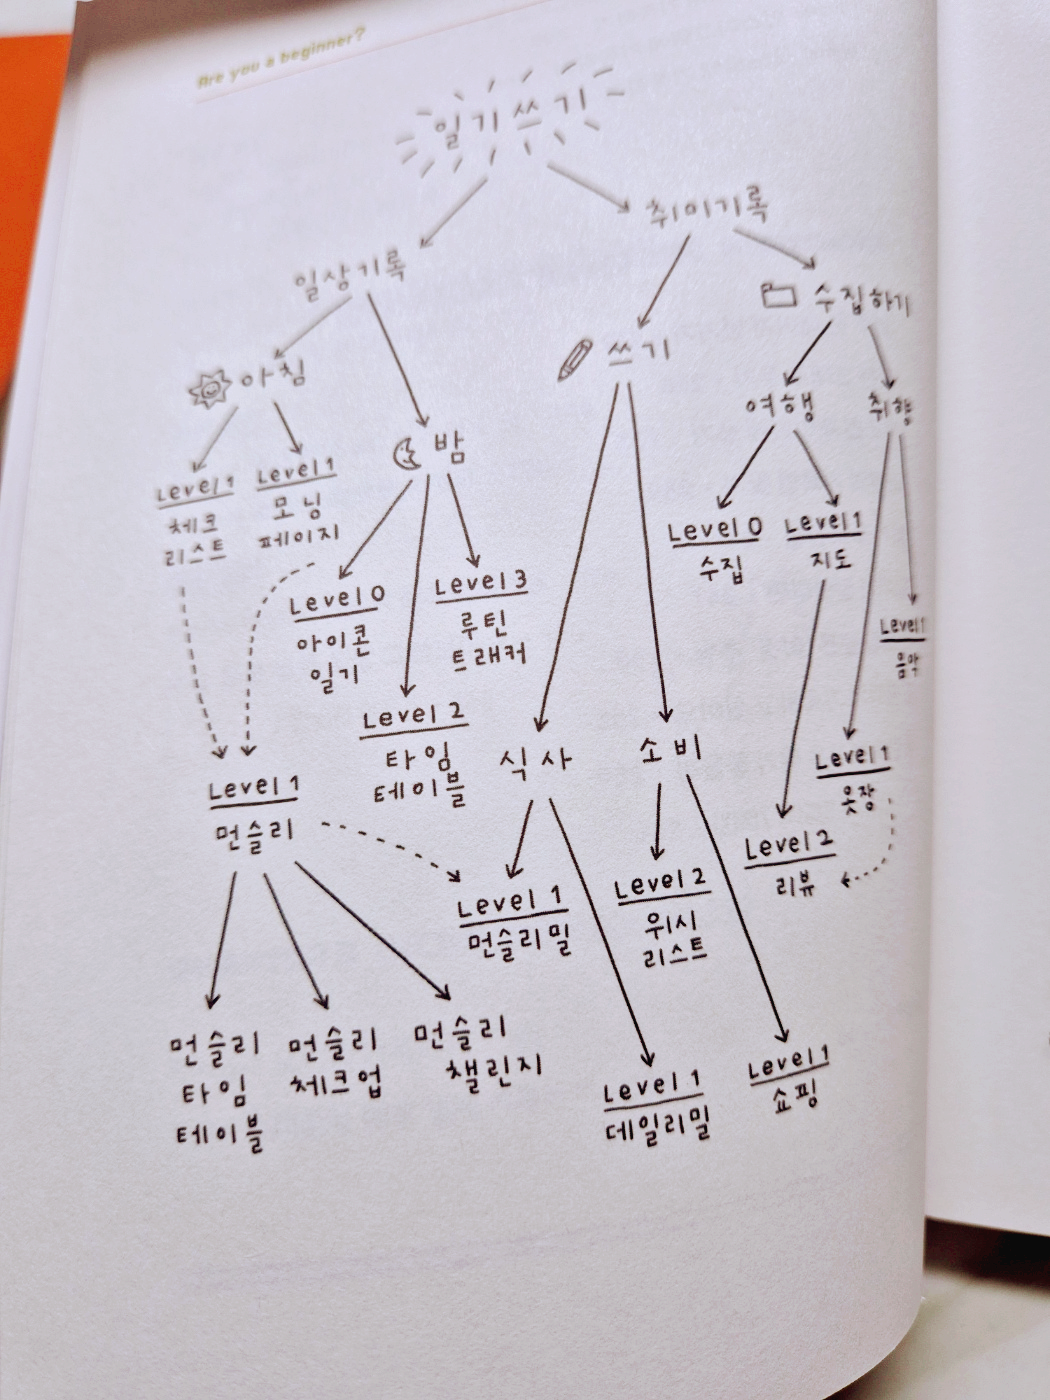 Are you a beginner?
일기 쓰기
취미기록
일상기록
수집하기
쓰기
아침
여행
취향
밤
Level 1
체크
리스트
Level 1
모닝
페이지
Level 0
수집
Level 1
지도
Level 0
아이콘
일기
Level 3
루틴
트래커
Level 1
음악
Level 2
타임
테이블
식사
소비
Level 1
옷장
Level 1
먼슬리
Level 2
리뷰
Level 1
먼슬리밀
Level 2
위시
리스트
먼슬리
타임
테이블
먼슬리
체크업
먼슬리
챌린지
Level 1
데일리밀
Level 1
쇼핑